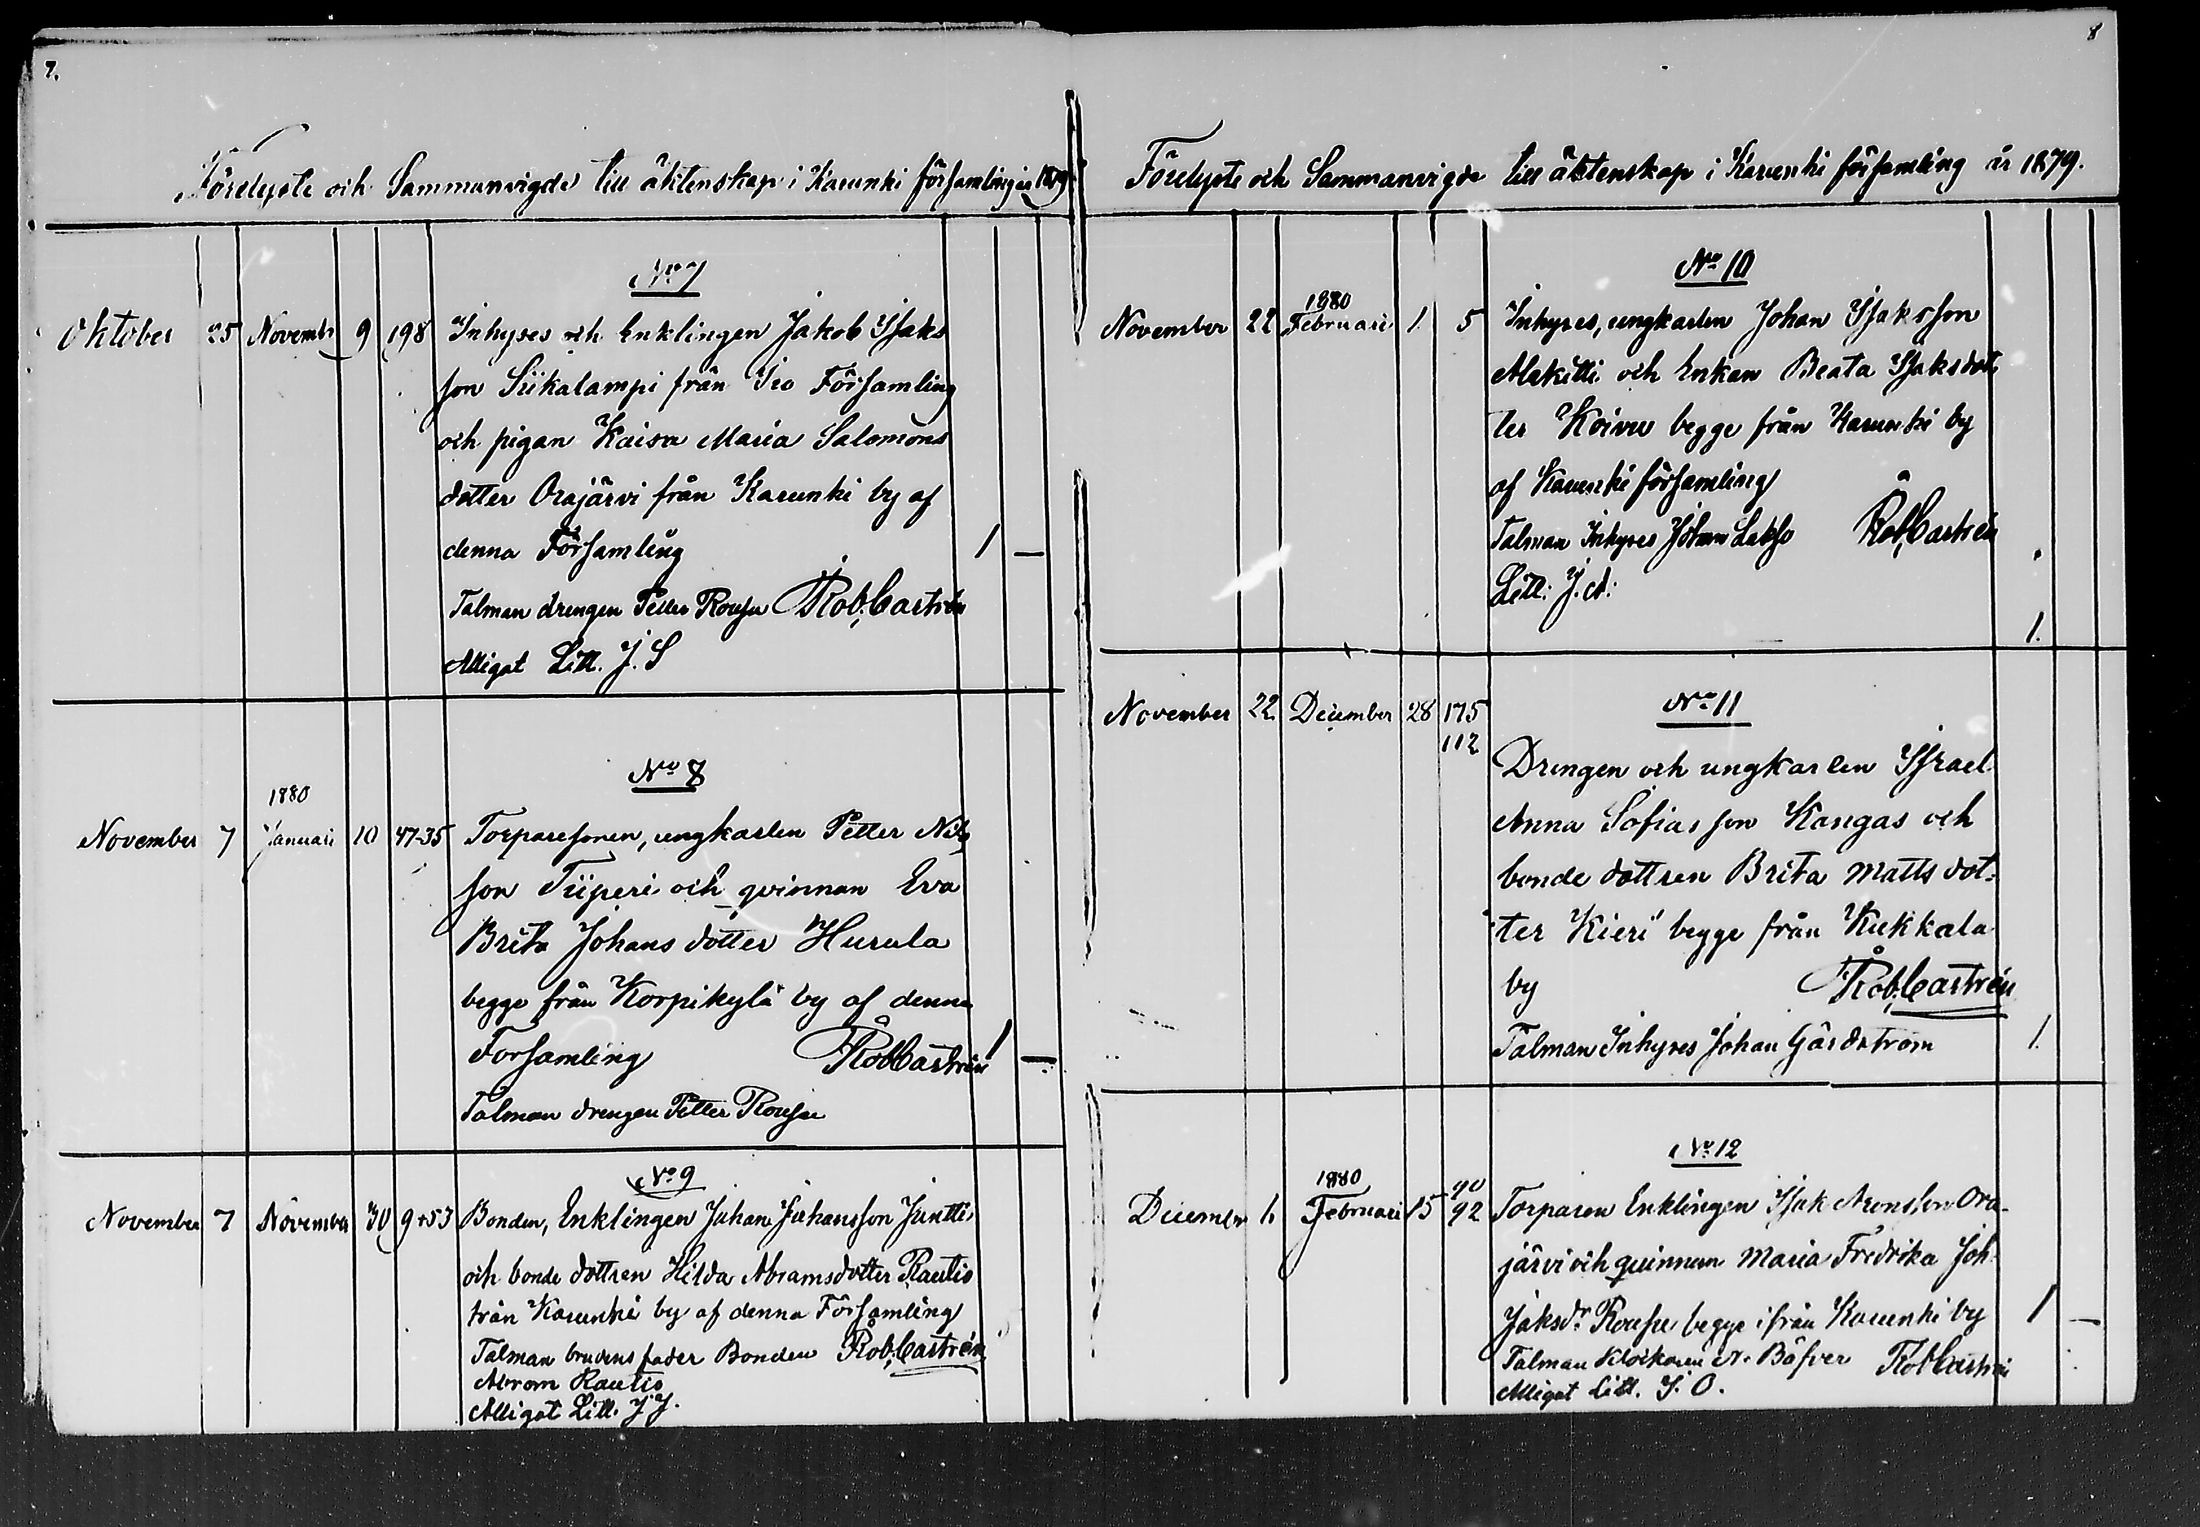 7.
Förelyste och Sammanvigde till äktenskap i Karunki församling år 1879
No 7
Oktober 25 November 9 198 Inhyses och Enklingen Jakob Isaks
son Siikalampi från Iio Församling
och pigan Kaisa Maria Salomons
dotter Orajärvi från Karunki by af
denna Församling 1 —
Talman drengen Petter Roussu Rob. Castrén
Alligat Litt. J. S
No 8
1880
November 7 Januari 10 47-35 Torparesonen, ungkarlen Petter Nils
son Tiiperi och qvinnan Eva
Brita Johans dotter Hurula
begge från Korpikylä by af denna
Församling Rob Castrén 1 —
Talman drengen Petter Roussu
No 9
November 7 November 30 9+53 Bonden, Enklingen Johan Johansson Juntti
och bonde dottren Hilda Abramsdotter Rautio
från Karunki by af denna Församling
Talman brudens fader Bonden Rob. Castrén
Abram Rautio
Alligat Litt. J J.
8
Förelyste och Sammanvigde till äktenskap i Karunki församling år 1879.
No 10
1880
November 22 Februari 1. 5 Inhyses, ungkarlen Johan Isaksson
Alakitti och Enkan Beata Isaksdot
ter Koivu begge från Karunki by
af Karunki församling
Talman Inhyses Johan Lakso Rob. Castrén
Litt: J. A: 1.
No 11
November 22 December 28 175
112
Drengen och ungkarlen Israel
Anna Sofias son Kangas och
bonde dottren Brita Matts dot-
ter Kieri begge från Kukkala
by Rob. Castrén
Talman Inhyses Johan Gårdström 1.
No 12
1880 90
December 6 Februari 15 92 Torparen Enklingen Isak Aronsson Ora-
järvi och quinnan Maria Fredrika Joh.
Jaksdr Roussu begge ifrån Karunki by 1 —
Talman Klockaren N. Båfver Rob Castrén
Alligat Litt. I. O.